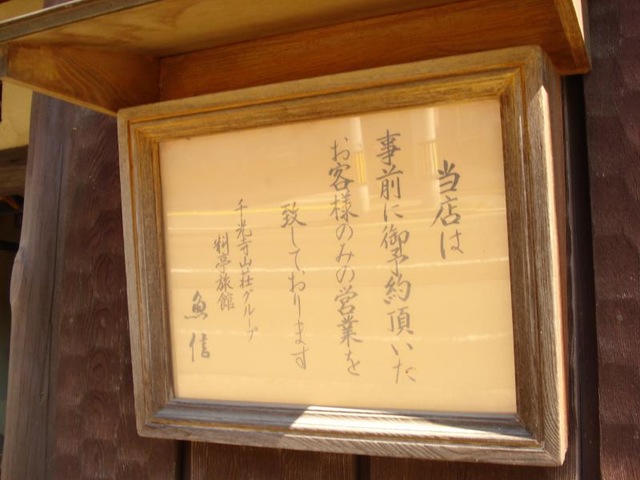 当店は
事前に御予約頂いた
お客様のみの営業を
致しております
千光寺山荘グループ
料亭旅館
魚信